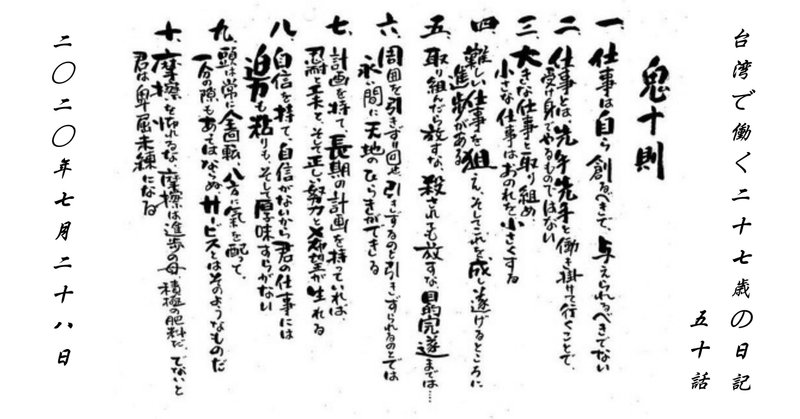 台湾で働く二十七歳の日記
五十話
鬼十則
一、仕事は自ら創るべきで、与えられるべきでない
二、仕事とは、先手先手と働き掛けて行くことで、
受け身でやるものではない
三、大きな仕事と取り組め
小さな仕事はおのれを小さくする
四、難しい仕事を狙え、そしてこれを成し遂げるところに
進歩がある
五、取り組んだら放すな、殺されても放すな、目的完遂までは…
六、周囲を引きずり回せ、引きずるのと引きずられるのとでは
永い間に天地のひらきができる
七、計画を持て、長期の計画を持っていれば、
忍耐と工夫と、そして正しい努力と希望が生れる
八、自信を持て、自信がないから君の仕事には
迫力も粘りも、そして厚味すらがない
九、頭は常に全回転、八方に氣を配って、
一分の隙もあってはならぬサービスとはそのようなものだ
十、摩擦を怖れるな、摩擦は進歩の母、積極の肥料だ、でないと
君は卑屈未練になる
二〇二〇年七月二十八日